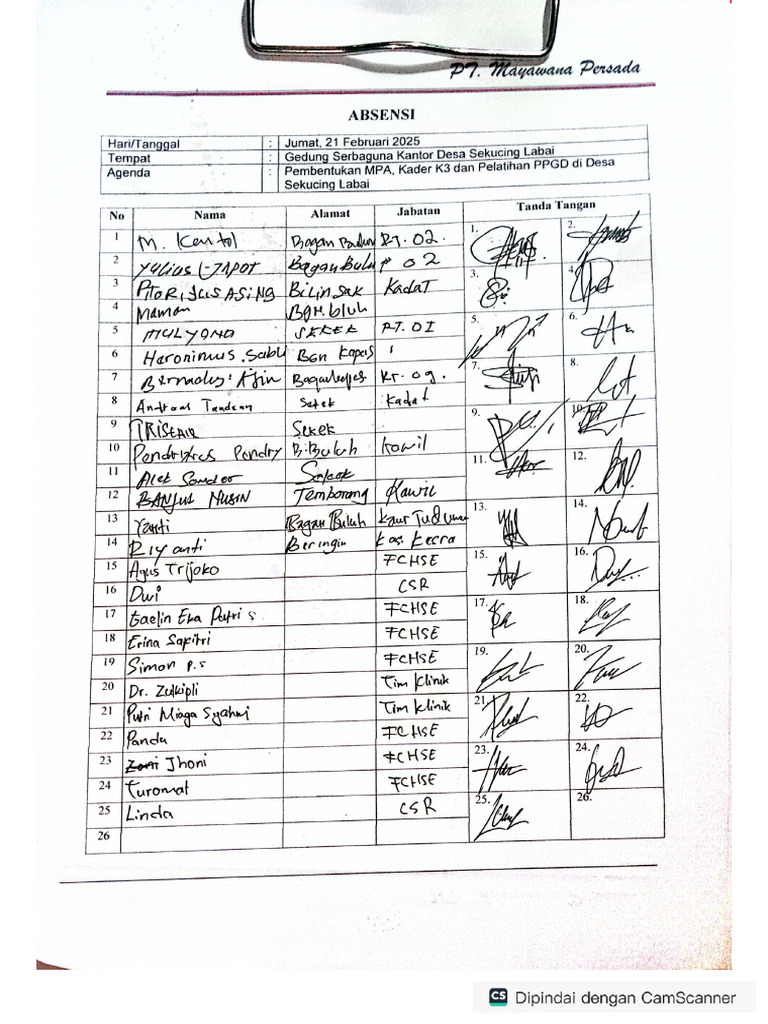 PT. Mayawana Persada
ABSENSI
Hari/Tanggal : Jumat, 21 Februari 2025
Tempat : Gedung Serbaguna Kantor Desa Sekucing Labai
Agenda : Pembentukan MPA, Kader K3 dan Pelatihan PPGD di Desa
Sekucing Labai
No Nama Alamat Jabatan Tanda Tangan
1 M. Kentol Bagan Buluh RT. 02. 1. 2.
2 Yulius Bagan Buluh 02
3 ASING Bilinsak Kadat 3. 4.
4 Maman Bgn. bluh
5 MULYONO SEKEK RT. 01 5. 6.
6 Heronimus . Sabli Ban Kapas
7 Ajin RT. 09. 7. 8.
8 Andreas Tandean Sekek Kadat
9 Sekek 9. 10.
10 Pendry B. Buluh Kawil
11 11. 12.
12 BANJUL Temborang Kawil
13 Yanti Bagan Buluh Kaur 13. 14.
14 Riyanti Beringin Kas. Kesra
15 Agus Trijoko FCHSE 15. 16.
16 Dwi CSR
17 Gaelin Eka Putri S FCHSE 17. 18.
18 Erina Sapitri FCHSE
19 Simon P.S FCHSE 19. 20.
20 Dr. Zulkipli Tim Klinik
21 Putri Miaga Syahwi Tim Klinik 21. 22.
22 Pandu FCHSE
23 Zoni Jhoni FCHSE 23. 24.
24 Turomat FCHSE
25 Linda CSR 25. 26.
26
CS Dipindai dengan CamScanner